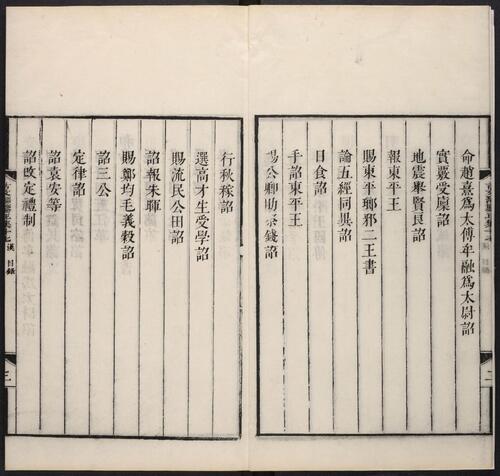 命趙憙爲太傅牟融爲太尉詔
實覈受廩詔
地震舉賢良詔
報東平王
賜東平瑯邪二王書
論五經同異詔
日食詔
手詔東平王
賜公卿助祭錢詔
二
行秋稼詔
選高才生受學詔
賜流民公田詔
詔報朱暉
賜鄭均毛義穀詔
詔三公
定律詔
詔袁安等
詔改定禮制
目錄
三